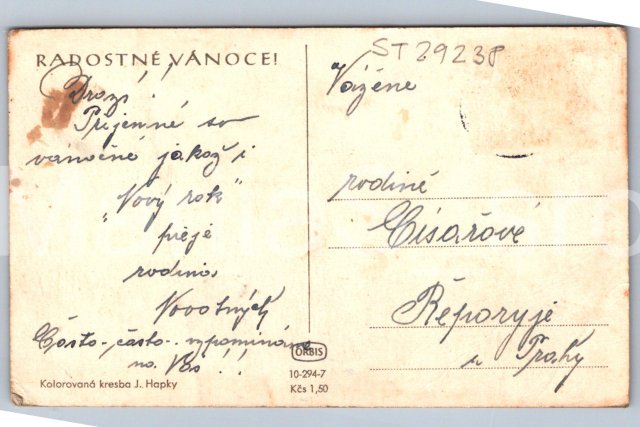 RADOSTNÉ VÁNOCE!
Drazí!
Příjemné sv
vánočné jakož i
"Nový rok"
přeje
rodina
Novotných
Často-často vzpomínáme
na Vás!!
Kolorovaná kresba J. Hapky
ORBIS
10-294-7
Kčs 1,50
ST 29238
Vážené
rodině
Císařové
Řeporyje
u Prahy